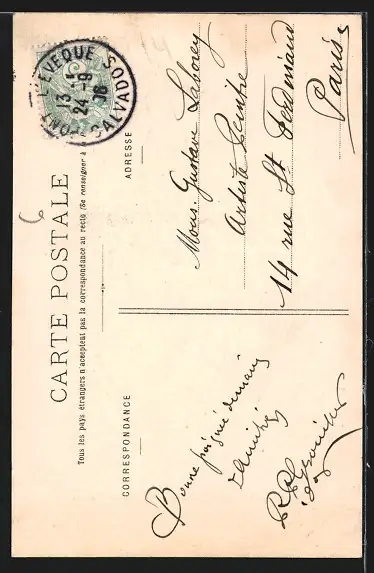 CARTE POSTALE
Tous les pays étrangers n'acceptent pas la correspondance au recto (Se renseigner à
CORRESPONDANCE
ADRESSE
PONT-L'EVEQUE
13 -
24 -9
CALVADOS
Bonne poignée de main
d'amitié
Mons. Gustave
Artiste Peintre
14 rue St Ferdinand
Paris